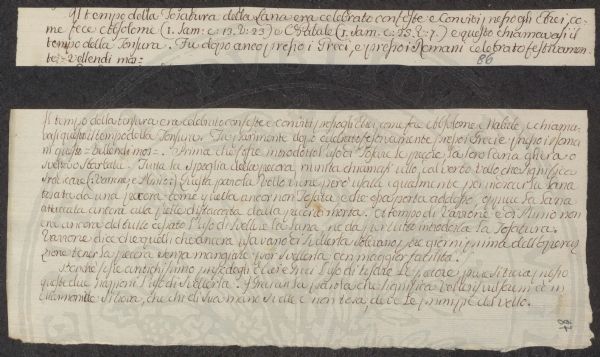 Il tempo della Tosatura della Lana era celebrato con feste e Conviti presso gli Ebrei, co-
me fece Absalome (1. Sam: c: 13. V: 23) e Nabale (1. Sam: c: 25. V: 7.) e questo chiamavasi il
tempo della Tonsura. Fu dopo anco presso i Greci, e presso i Romani celebrato festivamen-
te: Vellendi mos=
86
Il tempo della tonsura era celebrato con feste e conviti presso gli Ebrei come fece Absalome e Nabale e chiama-
vasi questo il tempo della Tonsura. Fu parimente dopo celebrato festevolmente presso i Greci e presso i Roma-
ni questo = vellendi mos=. Prima che fosse introdotto l'uso di Tosare le pecore la loro lana era o
svelta o strappata. Tutta la spoglia della pecora riunita chiamasi vello, dal verbo Vello che significa
sradicare (: Varrone e Plinio:) questa parola Vello viene però usata egualmente per
tosata da una pecora come quella ancor non Tosata e che essa porta addosso, oppure la lana
attaccata ancora alla pelle distaccata dalla pecora morta. Al tempo di Varrone e di Plinio non
era ancora del tutto cessato l'uso di svellere la Lana, ne da per tutto introdotta la Tosatura.
Varrone dice che quelli che ancora usavano di svellerla solevano tre giorni prima dell'opera-
zione tener la pecora senza mangiare per svellerla con maggior facilità.
Benche sì antichissimo presso degli Ebrei e Greci l'uso di tosare le pecore, pure si trova presso
queste due Nazioni l'uso di svellerla. I Greci
che chi di sua mano svelle e non tosa, deve le primizie del vello.
87